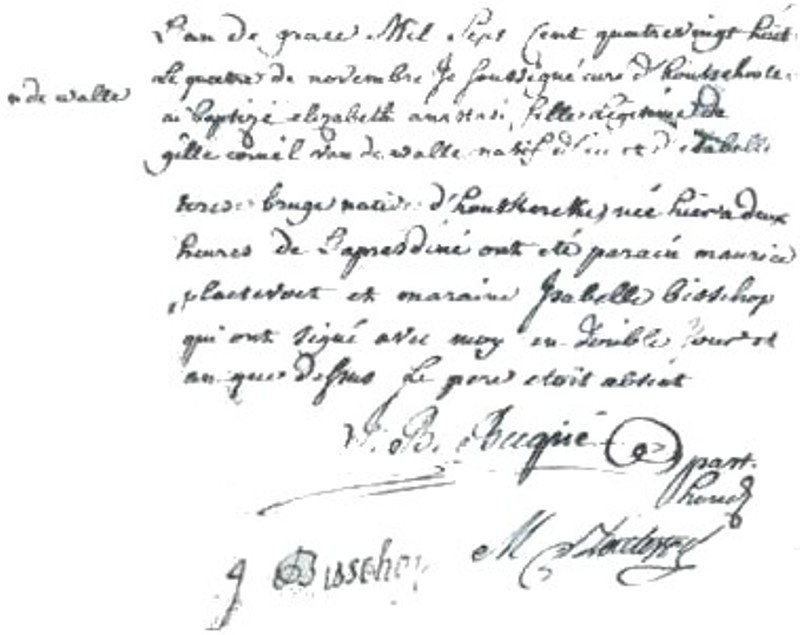 L'an de grace Mil Sept Cent quatrevingt huit
Le quatre de novembre Je soussigné curé d'houtschoote
n de walle
ai baptizé elizabeth anastasi fille légitime de
gille cornil van de walle natif d'ici et d'isabelle
bruge native d'houtkerke, née hier a deux
heures de l'apresdiné ont été parain maurice
et maraine Isabelle bisschop
qui ont signé avec moy en double jour et
an que dessus Le pere etoit absent
J. B. Becquié past.
hond
J Bisschop M